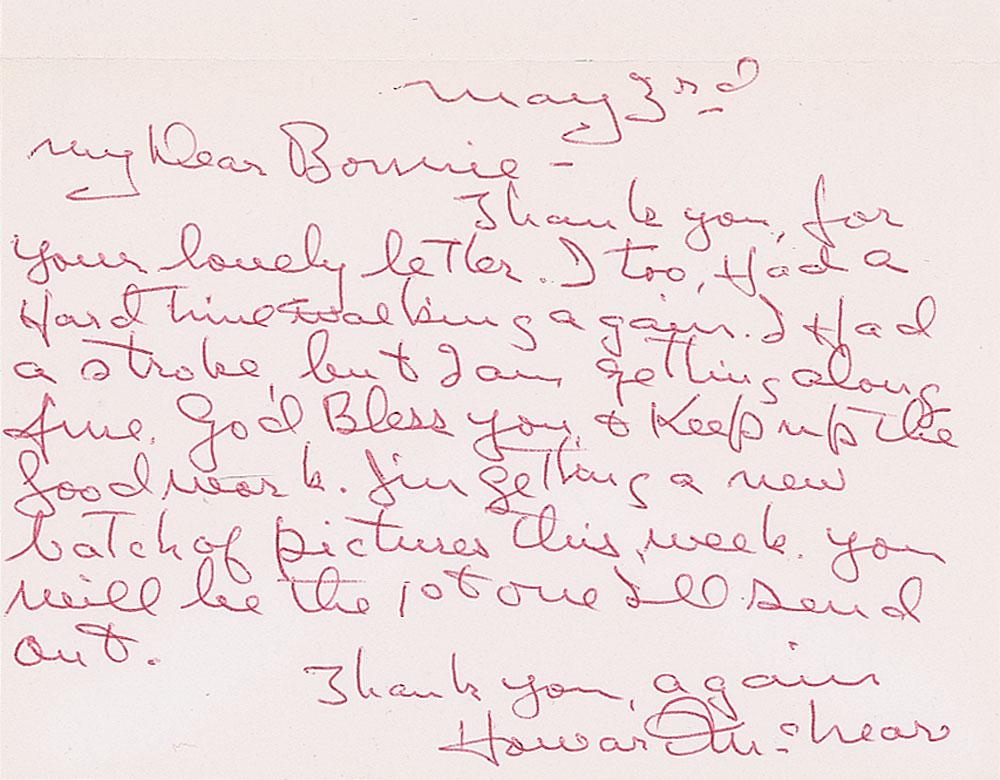 May 3rd
My Dear Bonnie -
Thank you, for
your lovely letter. I too, Had a
Hard time walking again. I Had
a stroke, but I am getting along
fine. God Bless you, & Keep up the
good work. I'm getting a new
batch of pictures this, week. you
will be the 1st one I'll send
out.
Thank you, again
Howard